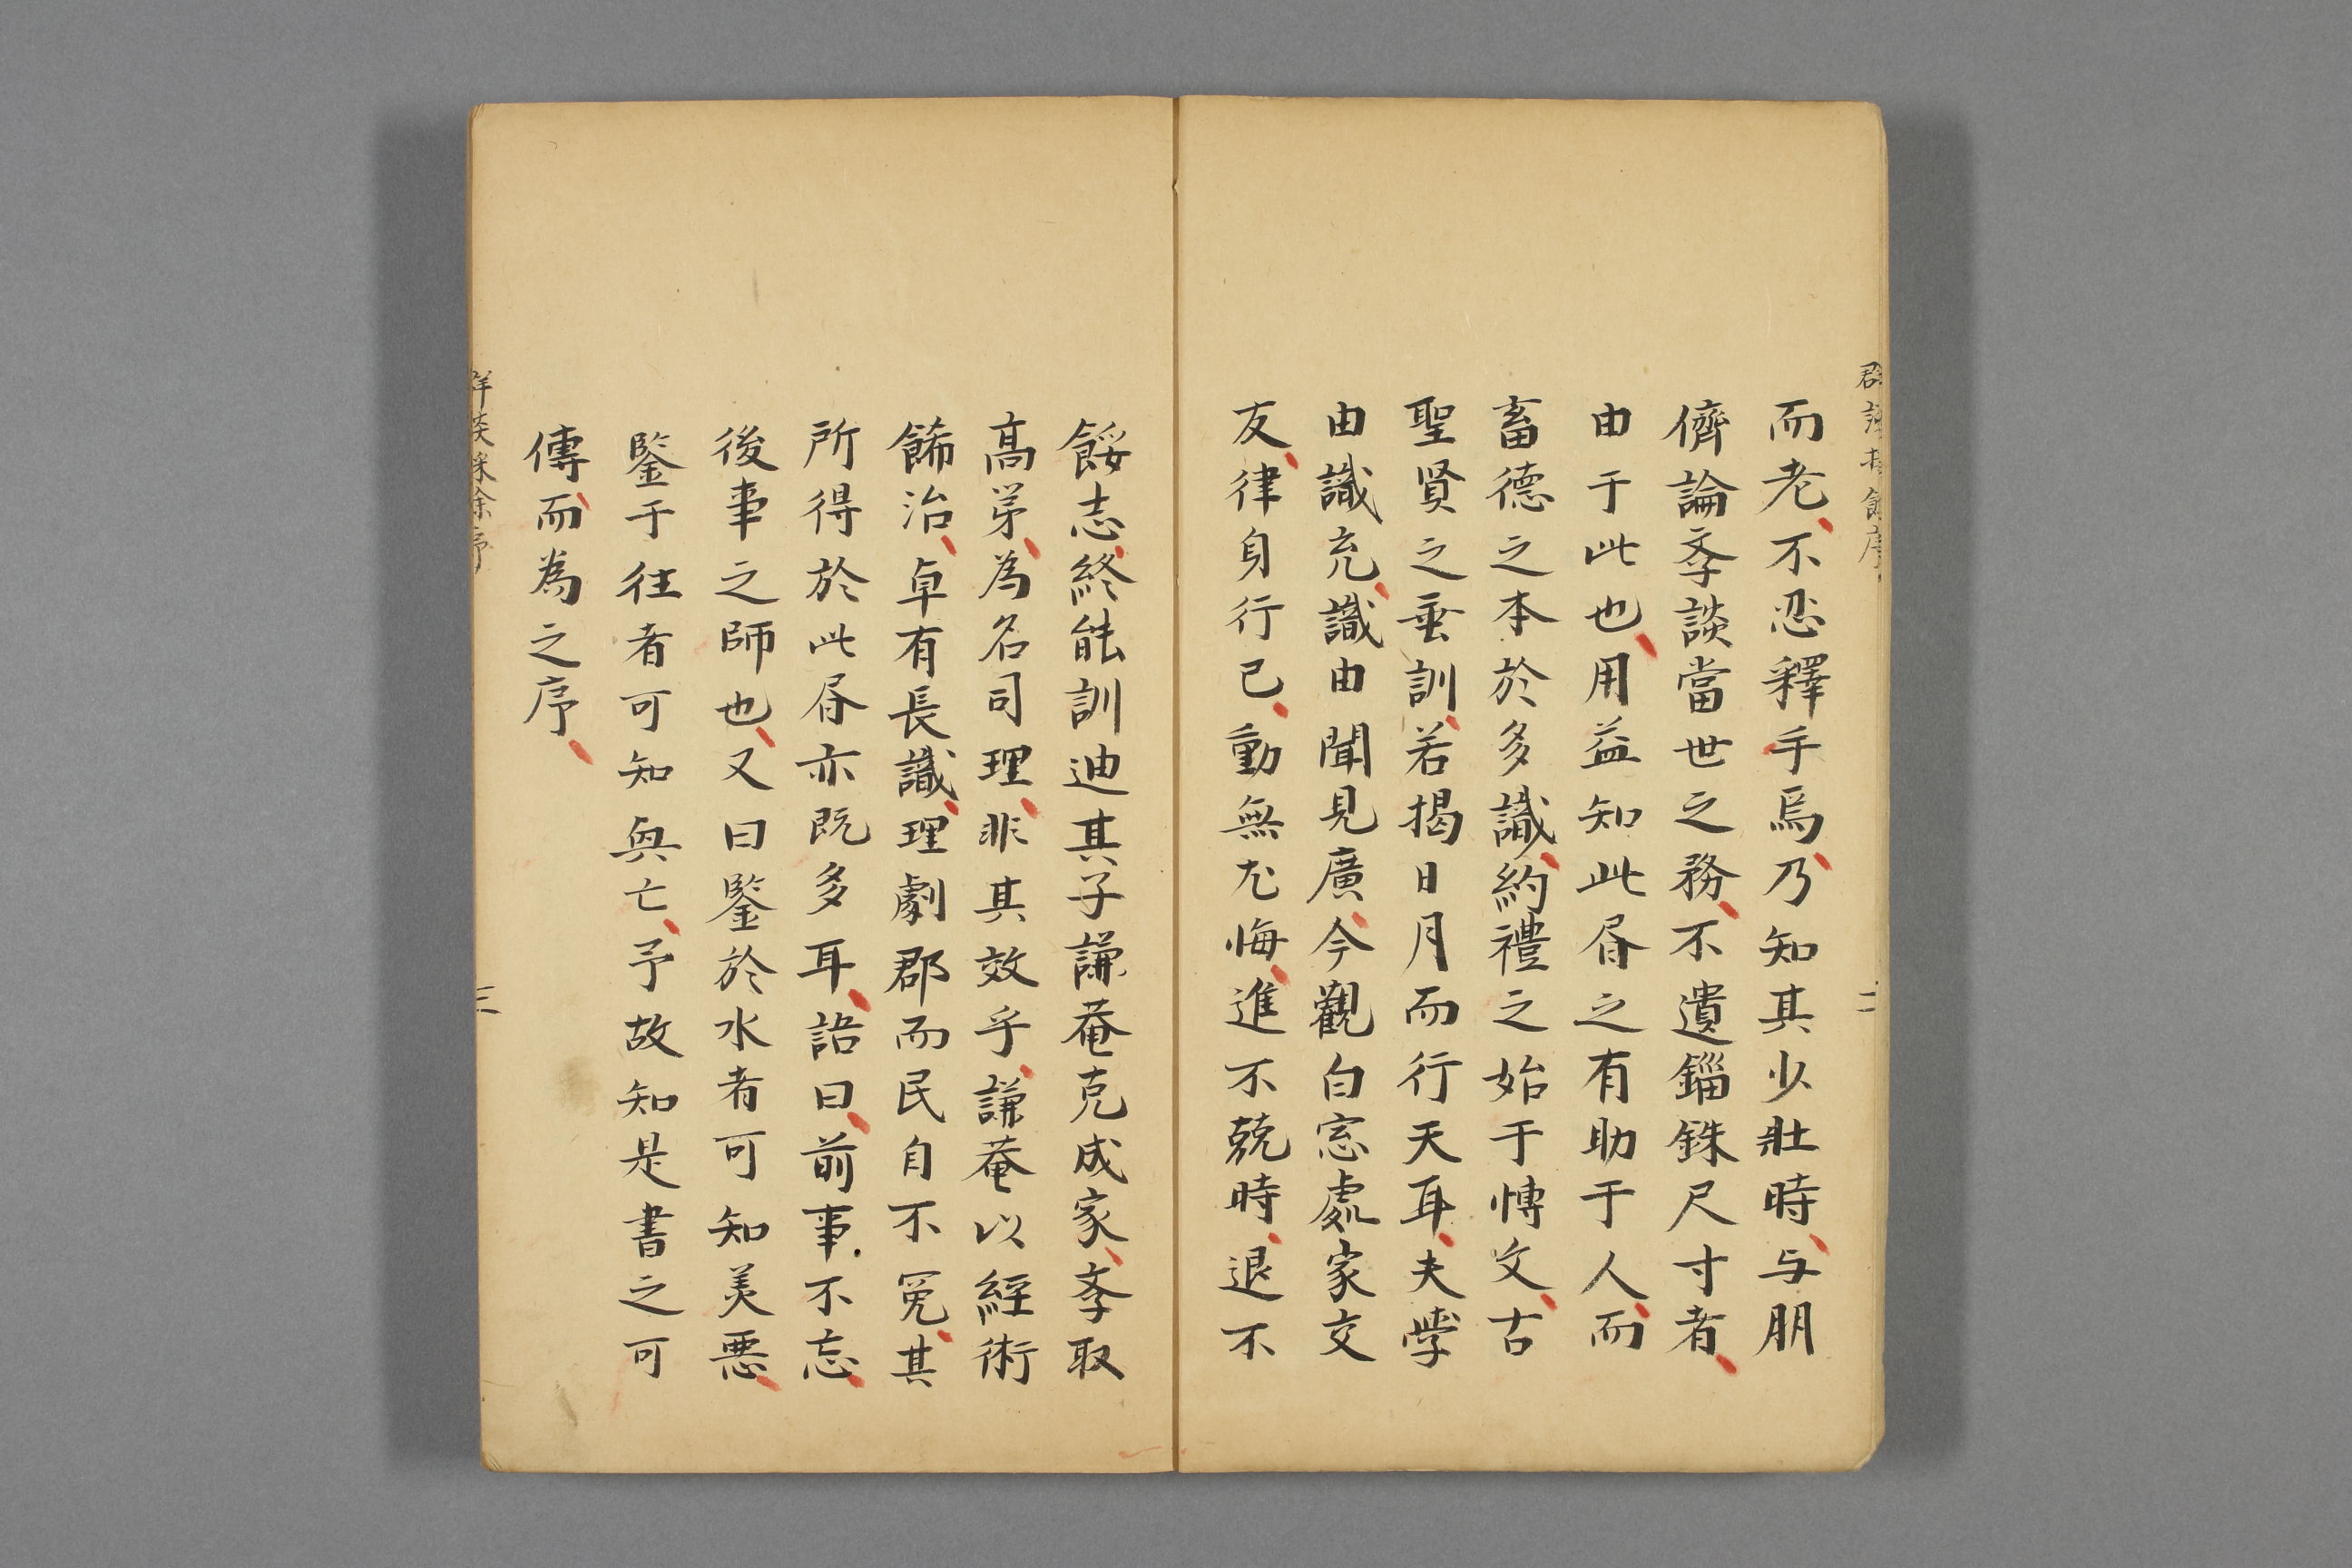 而老不忍釋手焉乃知其少壯時与朋
儕論孝談當世之務不遺錙銖尺寸者
由于此也用益知此昏之有助于人而
畜德之本於多識約禮之始于愽文古
聖賢之垂訓若揭日月而行天耳夫學
由識充識由聞見廣今觀白窓處家交
友律身行己動無尤悔進不兢時退不
餒志終能訓迪其子謙菴克成家孝取
高弟為名司理非其效乎謙菴以經術
餙治卓有長識理劇郡而民自不冤其
所得於此昏亦既多耳語曰前事不忘
後事之師也又曰鑒於水者可知美惡
鑒于往者可知興亡予故知是書之可
傳而為之序
群談採餘序
三